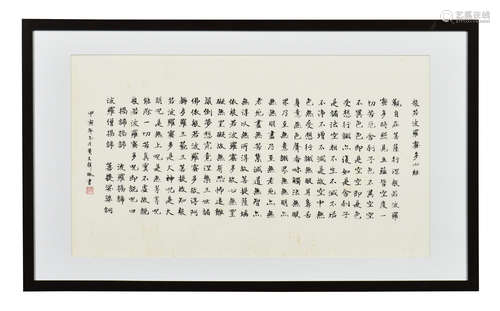 般若波羅蜜多心經
觀自在菩薩行深般若波羅
蜜多時照見五蘊皆空度一
切苦厄舍利子色不異空空
不異色色即是空空即是色
受想行識亦復如是舍利子
是諸法空相不生不滅不垢
不淨不增不減是故空中無
色無受想行識無眼耳鼻舌
身意無色聲香味觸法無眼
界乃至無意識界無無明亦
無無明盡乃至無老死亦無
老死盡無苦集滅道無智亦
無得以無所得故菩提薩埵
依般若波羅蜜多故心無罣
礙無罣礙故無有恐怖遠離
顛倒夢想究竟涅槃三世諸
佛依般若波羅蜜多故得阿
耨多羅三藐三菩提故知般
若波羅蜜多是大神咒是大
明咒是無上咒是無等等咒
能除一切苦真實不虛故說
般若波羅蜜多咒即說咒曰
揭諦揭諦 波羅揭諦
波羅僧揭諦 菩提娑婆訶
甲寅年 月 敬書